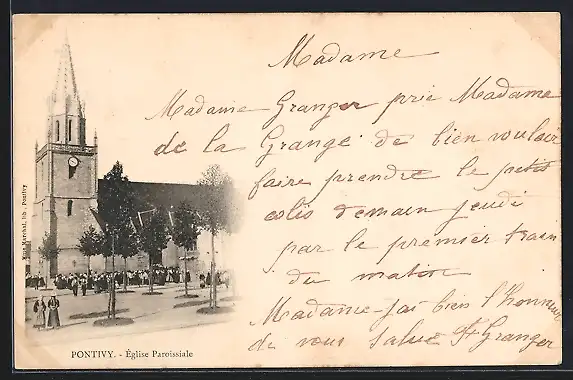 Madame
Madame Granger prie Madame
de la Grange de bien vouloir
faire prendre le petit
colis demain jeudi
par le premier train
du matin
Madame j'ai bien l'honneur
de vous saluer Granger
Marchal, lib. Pontivy
PONTIVY. - Église Paroissiale